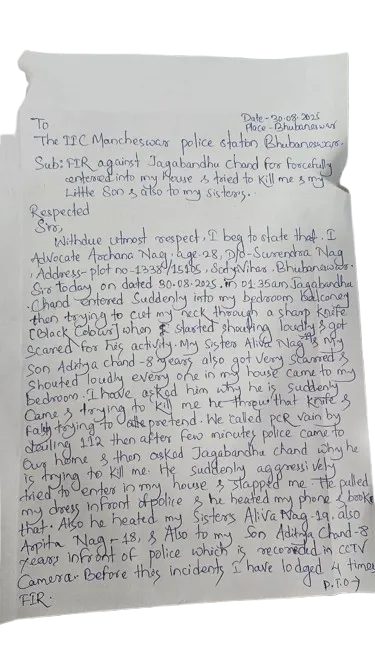 Date - 30.08.2025
To
Place - Bhubaneswar
The IIC Mancheswar police station Bhubaneswar.
Sub: FIR against Jagabandhu Chand for forcefully
entered into my House & tried to kill me & my
Little Son & also to my sisters.
Respected
Sir,
Withdue utmost respect, I beg to state that, I
Advocate Archana Nag, age-28, D/o-Surendra Nag
, Address- plot no-1338/15105, Satya Vihar, Bhubaneswar.
Sir today on dated 30.08.2025. in 01:35am Jagabandhu
Chand entered Suddenly into my bedroom Balconey
then trying to cut my neck through a sharp knife
[Black Colour] when I started shouting loudly & got
Scared for his activity. My Sisters Aliva Nag & my
Son Aditya chand - 8 years also got very scarred &
Shouted loudly every one in my house came to my
bedroom. I have asked him why he is suddenly
Came & trying to kill me he throw that knife &
trying to pretend. We called PCR vain by
112 then after few minutes police came to
Our home & then asked Jagabandhu chand why he
is trying to kill me. He suddenly aggressively
tried to enter in my house & slapped me. He pulled
my dress infront of police & he heated my phone & booke
that. Also he heated my Sisters Aliva Nag-19, also
Arpita Nag - 18, & Also to my Son Aditya Chand-8
years infront of police which is recorded in CCTV
Camera. Before this incidents I have lodged 4 times
FIR.
P.T.O →